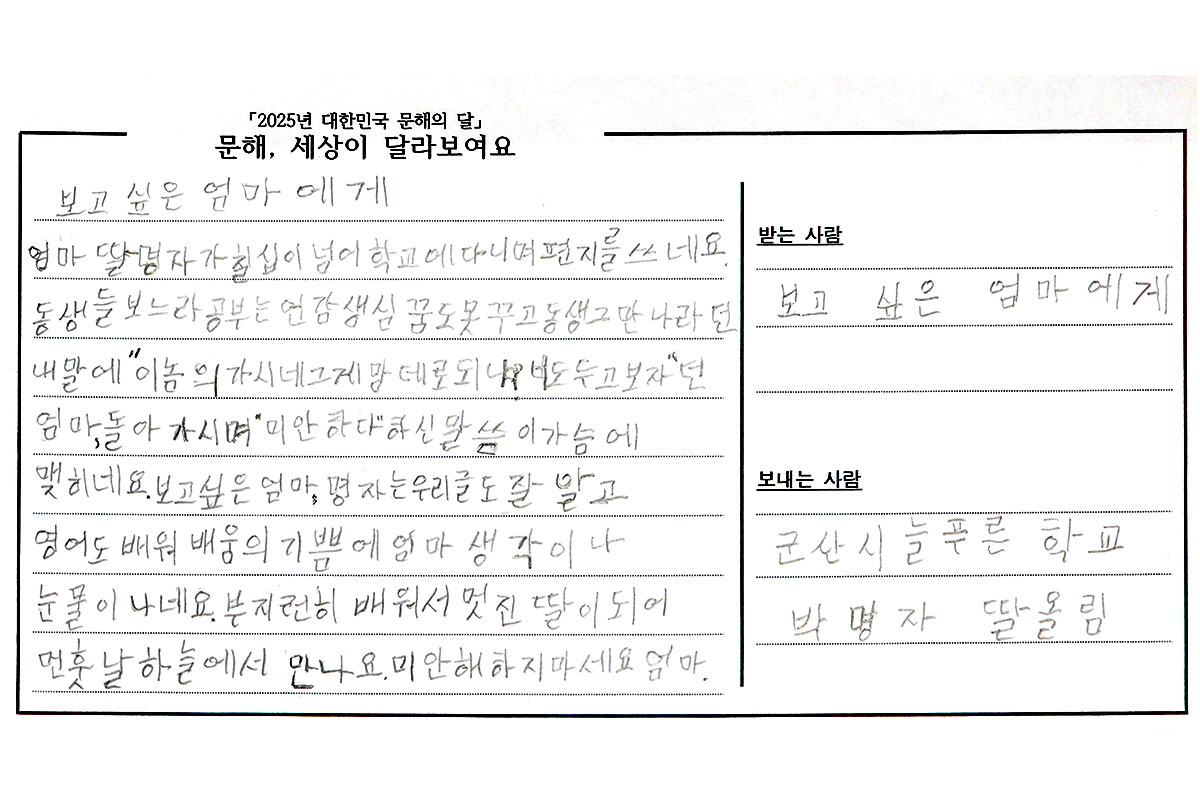 「2025년 대한민국 문해의 달」
문해, 세상이 달라보여요
보고 싶은 엄마에게
엄마 딸 명자가 칠십이 넘어 학교에 다니며 편지를 쓰네요.
동생들 보느라 공부는 언감생심 꿈도 못 꾸고 동생 그만 나라 던
내 말에 "이놈의 가시네 그게 맘 데로 되냐? 너도 두고보자" 던
엄마, 돌아 가시며 "미안 하다" 하신 말씀 이 가슴에
맺히네요. 보고싶은 엄마, 명자는 우리글도 잘 알고
영어도 배워 배움의 기쁨에 엄마 생각이 나
눈물이 나네요. 부지런히 배워서 멋진 딸이 되어
먼훗날 하늘에서 만나요. 미안해 하지마세요 엄마.
받는 사람
보고 싶은 엄마에게
보내는 사람
군산시 늘푸른 학교
박명자 딸올림